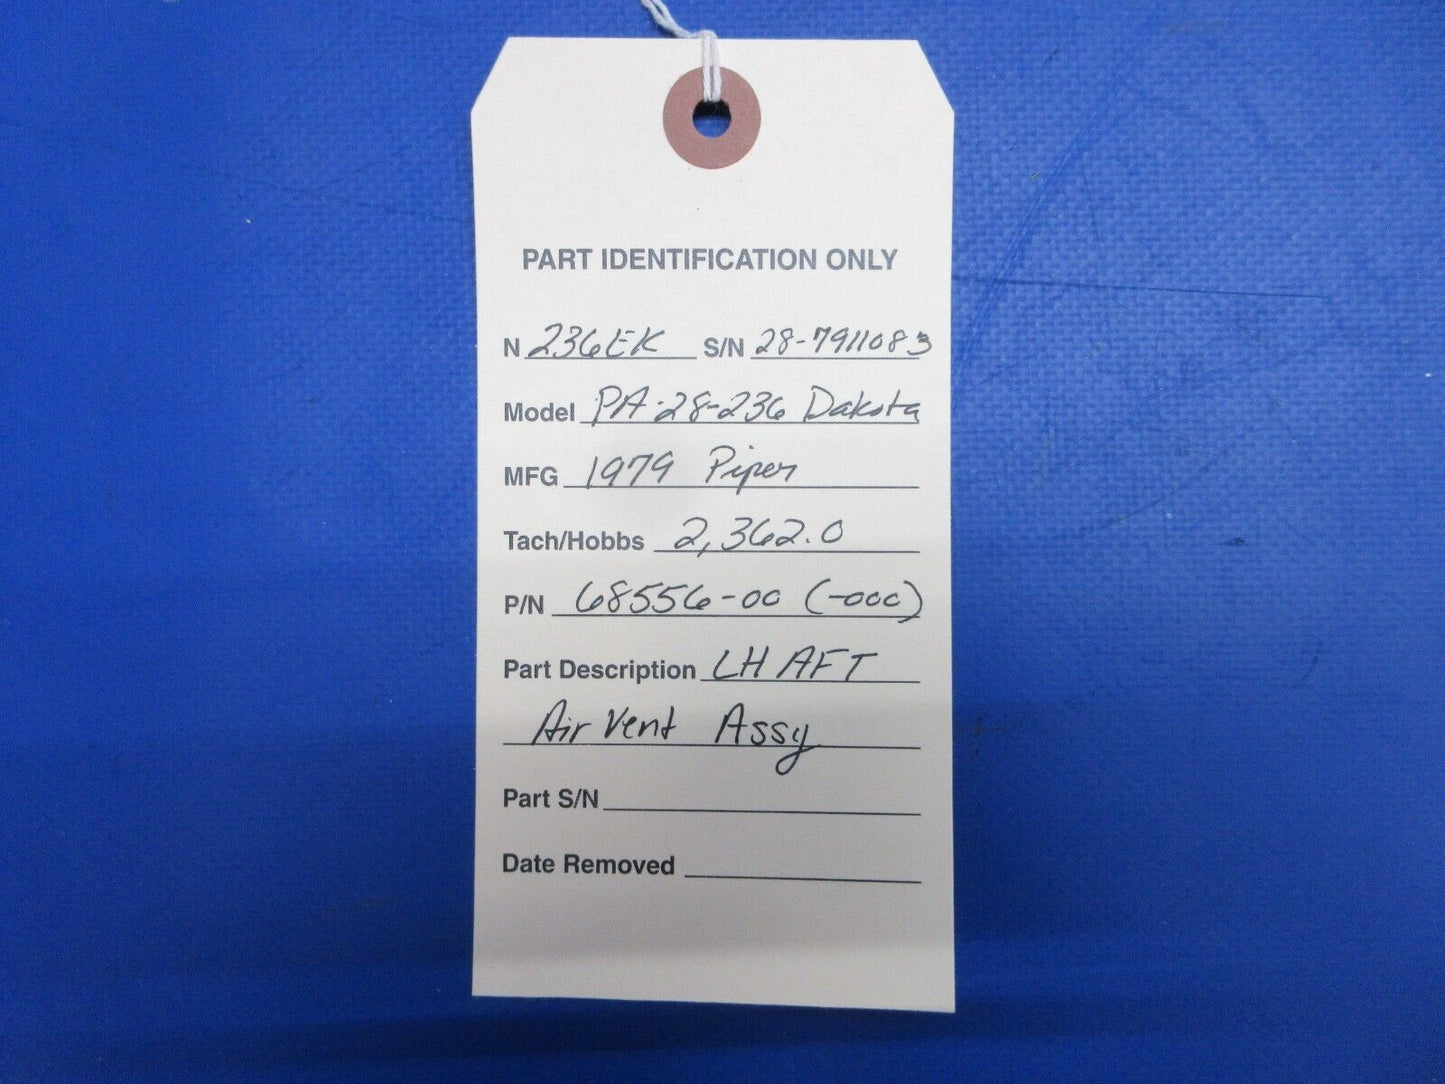 PART IDENTIFICATION ONLY
N 236EK S/N 28-7911083
Model PA-28-236 Dakota
MFG 1979 Piper
Tach/Hobbs 2,362.0
P/N 68556-00 (-000)
Part Description LH AFT
Air Vent Assy
Part S/N
Date Removed